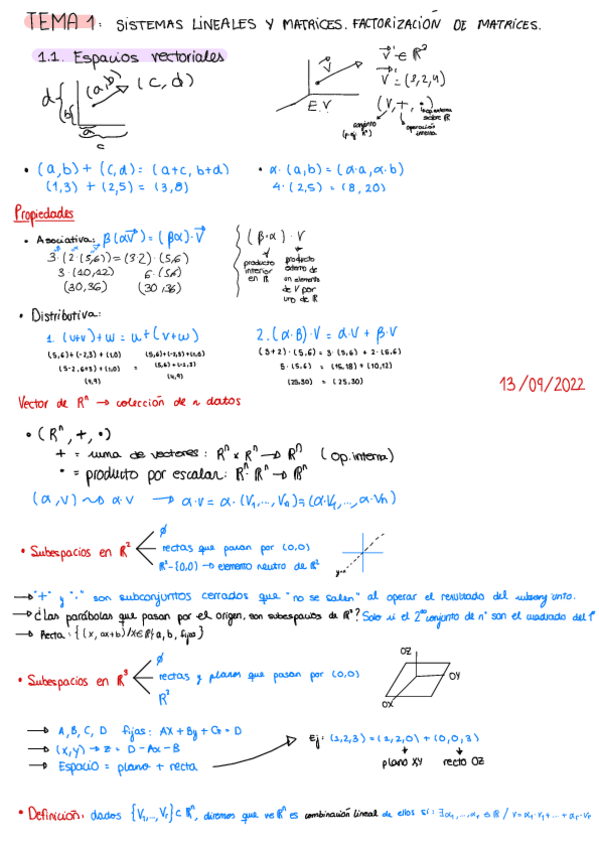 TEMA 1: SISTEMAS LINEALES Y MATRICES. FACTORIZACIÓN DE MATRICES.
1.1. Espacios vectoriales
d b (a,b) (c,d)
a
c
V
E.V
V ∈ R²
V = (3,2,4)
(V,+,·)
conjunto
operación interna
• (a,b) + (c,d) = (a+c, b+d)
(1,3) + (2,5) = (3,8)
• α·(a,b) = (α·a, α·b)
4·(2,5) = (8,20)
Propiedades
• Asociativa: β(αV) = (βα)·V
3·(2·(5,6)) = (3·2)·(5,6)
3·(10,12) 6·(5,6)
(30,36) (30,36)
(β·α)·V
producto interior en R
producto externo de un elemento de V por uno de R
• Distributiva:
1. (u+v)+w = u+(v+w)
(5,6)+(-2,3)+(1,0) (5,6)+(-2,3)+(1,0)
(4,9) (4,9)
2. (α·β)·V = α·V + β·V
(3+2)·(5,6) = 3·(5,6) + 2·(5,6)
5·(5,6) = (15,18) + (10,12)
(25,30) = (25,30)
13/09/2022
Vector de Rⁿ → colección de n datos
• (Rⁿ,+,·)
+ = suma de vectores: Rⁿ x Rⁿ → Rⁿ (op. interna)
· = producto por escalar: Rⁿ·Rⁿ → Rⁿ
(α,v) ~> α·v → α·v = α·(V₁,...,Vn) = (α·V₁,...,α·Vn)
• Subespacios en R²
∅
rectas que pasan por (0,0)
R²-{0,0} → elemento neutro de R²
→ "+" y "·" son subconjuntos cerrados que "no se salen" al operar el resultado del subconjunto.
→ ¿Las parábolas que pasan por el origen, son subespacios de R²? Solo si el 2º conjunto de nº son el cuadrado del 1º
→ Recta: {(x, ax+b)/x∈R; a, b, fijos}
• Subespacios en R³
∅
rectas y planos que pasan por (0,0)
R²
OZ
OY
OX
→ A, B, C, D fijas: AX + By + Cz = D
→ (x,y) → z = D - Ax - B
→ Espacio = plano + recta
Ej: (1,2,3) = (1,2,0) + (0,0,3)
plano XY recta OZ
• Definición: dados {V₁,...,Vr} ⊂ Rⁿ, diremos que v∈Rⁿ es combinación lineal de ellos si: ∃ α₁,...,αr ∈ R / v = α₁·V₁ + ... + αr·Vr